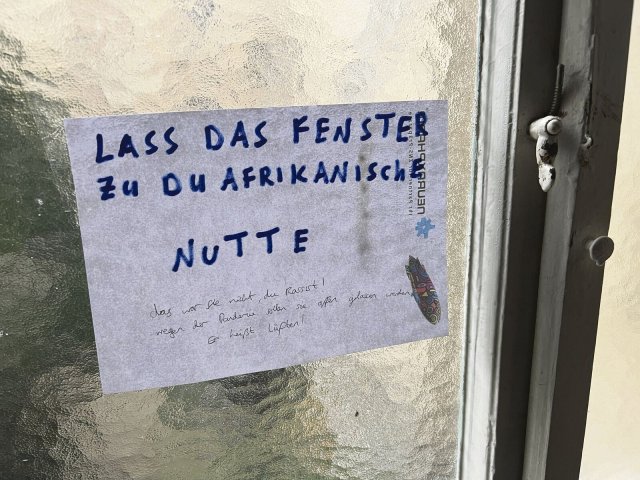 LASS DAS FENSTER
ZU DU AFRIKANISCHE
NUTTE
das war sie nicht, du Rassist!
wegen der Pandemie sollen sie offen gelassen werden.
Er heißt Lüften!
#NEUHSPRAUEN